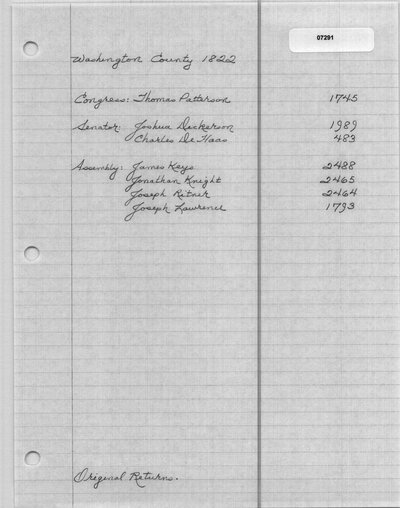 07291
Washington County 1822
Congress: Thomas Patterson 1745
Senator: Joshua Dickerson 1989
Charles De Haas 483
Assembly: James Keys 2488
Jonathan Knight 2465
Joseph Ritner 2464
Joseph Lawrence 1793
Original Returns.